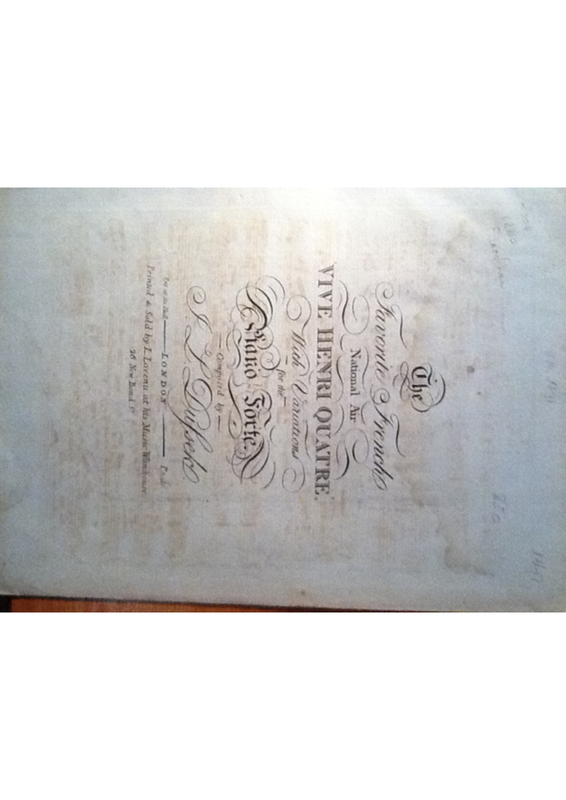 The
Favorite French
National Air
VIVE HENRI QUATRE.
With Variations
for the
Piano Forte.
Composed by
J. L. Dussek
LONDON
Printed & Sold by L. Lavenu at his Music Warehouse
26 New Bond St.